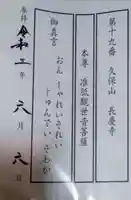 第十九番 久保山
本尊 准胝観世音菩薩
御真言
おん しゃれいされい
じゅんてい そわか
参拝 令和 年 六月 六日